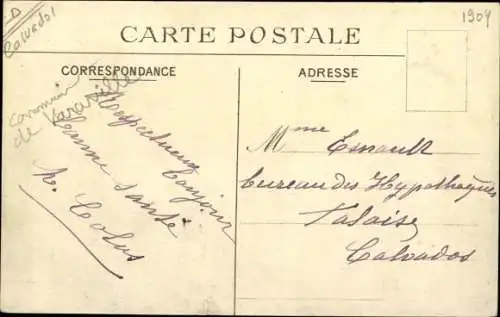 D
Calvados
1909
CARTE POSTALE
CORRESPONDANCE
ADRESSE
Commun
de Varaville
Respectueux bonjour
Bonne santé
Mme Esnault
bureau des Hypothèques
Falaise
Calvados